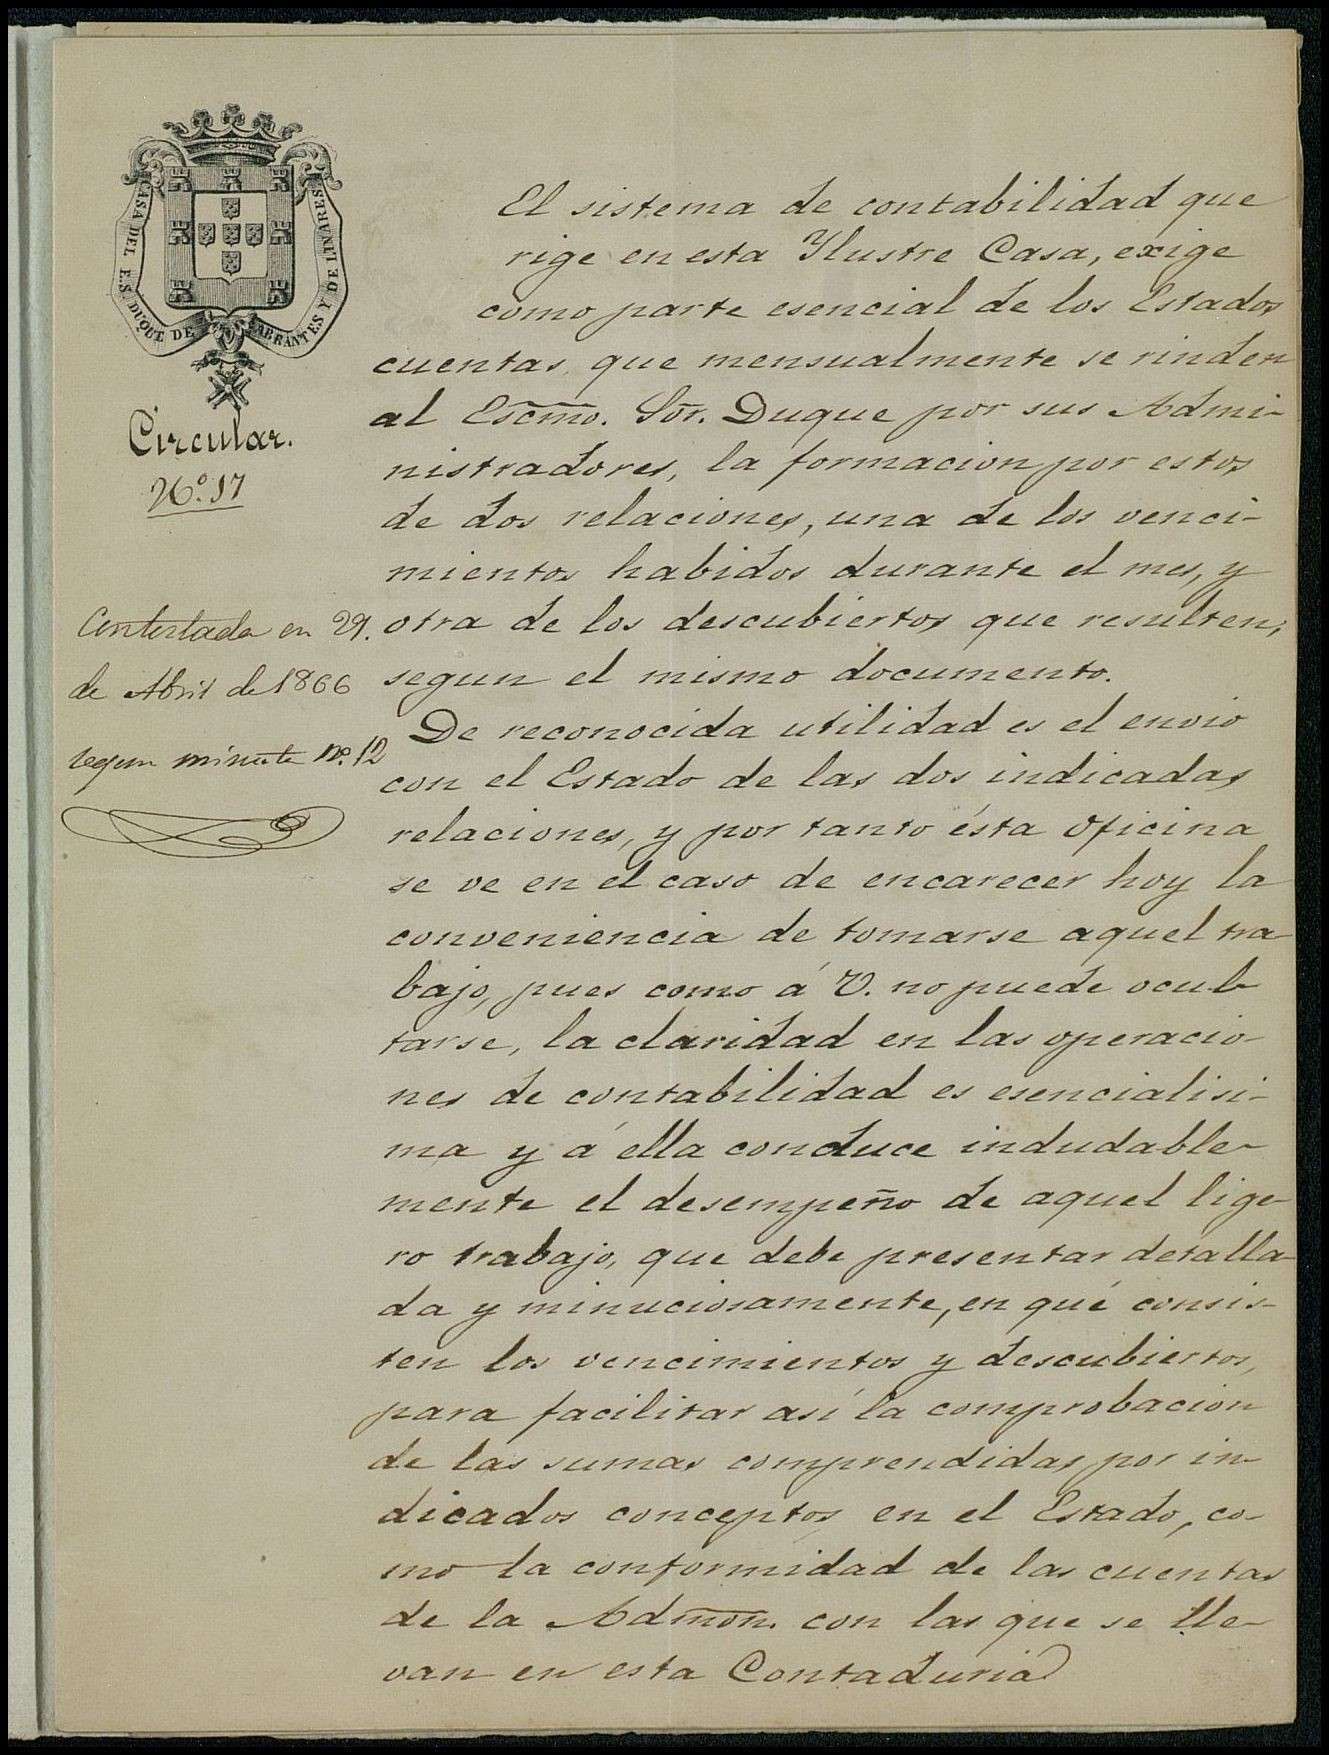 CASA DEL E.S. DUQUE DE ABRANTES Y DE LINARES
Circular.
Nº. 17
Contestada en 29.
de Abril de 1866
segun minuta nº. 12
El sistema de contabilidad que
rige en esta Ylustre Casa, exige
como parte esencial de los Estados
cuentas, que mensualmente se rinden
al Escmo. Sor. Duque por sus Admi-
nistradores, la formacion por estos
de dos relaciones, una de los venci-
mientos habidos durante el mes, y
otra de los descubiertos que resulten,
segun el mismo documento.
De reconocida utilidad es el envio
con el Estado de las dos indicadas
relaciones, y por tanto ésta oficina
se ve en el caso de encarecer hoy la
conveniencia de tomarse aquel tra-
bajo, pues como á V. no puede ocul-
tarse, la claridad en las operacio-
nes de contabilidad es esencialisi-
ma y á ella conduce indudable-
mente el desempeño de aquel lige-
ro trabajo, que debe presentar detalla-
da y minuciosamente, en qué consis-
ten los vencimientos y descubiertos,
para facilitar así la comprobacion
de las sumas comprendidas por in-
dicados conceptos en el Estado, co-
mo la conformidad de las cuentas
de la Admon. con las que se lle-
van en esta Contaduria